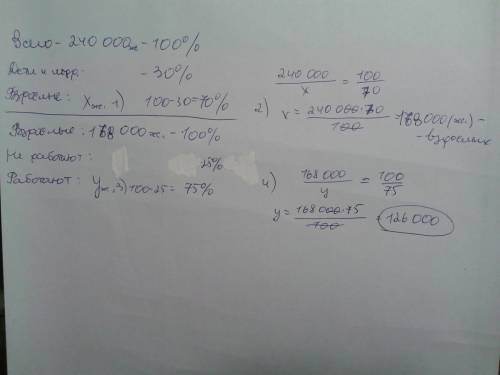 Всего - 240 000 ж - 100%
Дети и подр. - 30%
Взрослые: X ж. 1) 100-30=70%
240 000 / X = 100 / 70
2) X = 240 000·70 / 100 = 168 000 (ж.) -
- взрослых
Взрослые: 168 000 ж. - 100%
Не работают: 25%
Работают: У ж. 3) 100-25 = 75%
4) 168 000 / y = 100 / 75
y = 168 000·75 / 100 = 126 000